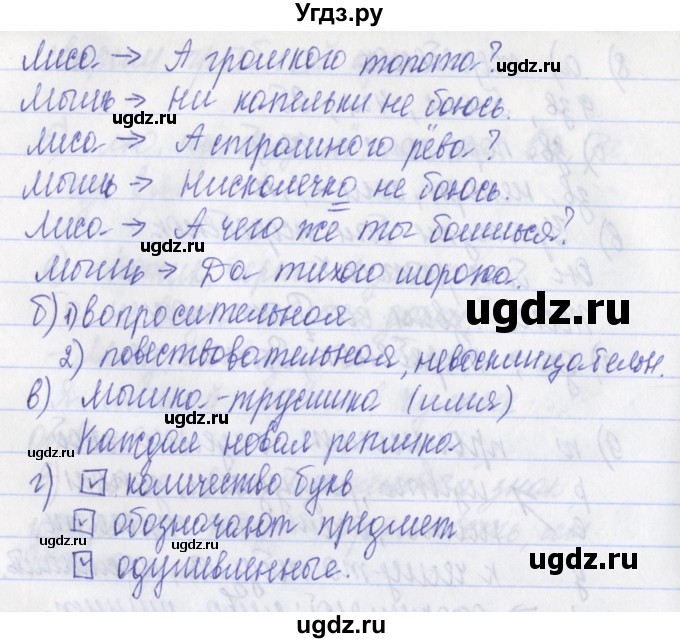 Угдз.ру
Лиса → А громкого топота?
ugdz.ru
Мышь → Ни капельки не боюсь.
ugdz.ru
Лиса → А страшного рёва?
Мышь → Нисколечко не боюсь.
ugdz.ru
Лиса → А чего же ты боишься?
ugdz.ru
Мышь → Да тихого шороха.
ugdz.ru
б) 1) вопросительная
2) повествовательная, невосклицательн.
в) Мышка-трусишка (имя)
ugdz.ru
Каждая новая реплика.
ugdz.ru
г) ✓ количество букв
✓ обозначают предмет
ugdz.ru ugdz.ru
✓ одушивленные.
ugdz.ru
ugdz.ru